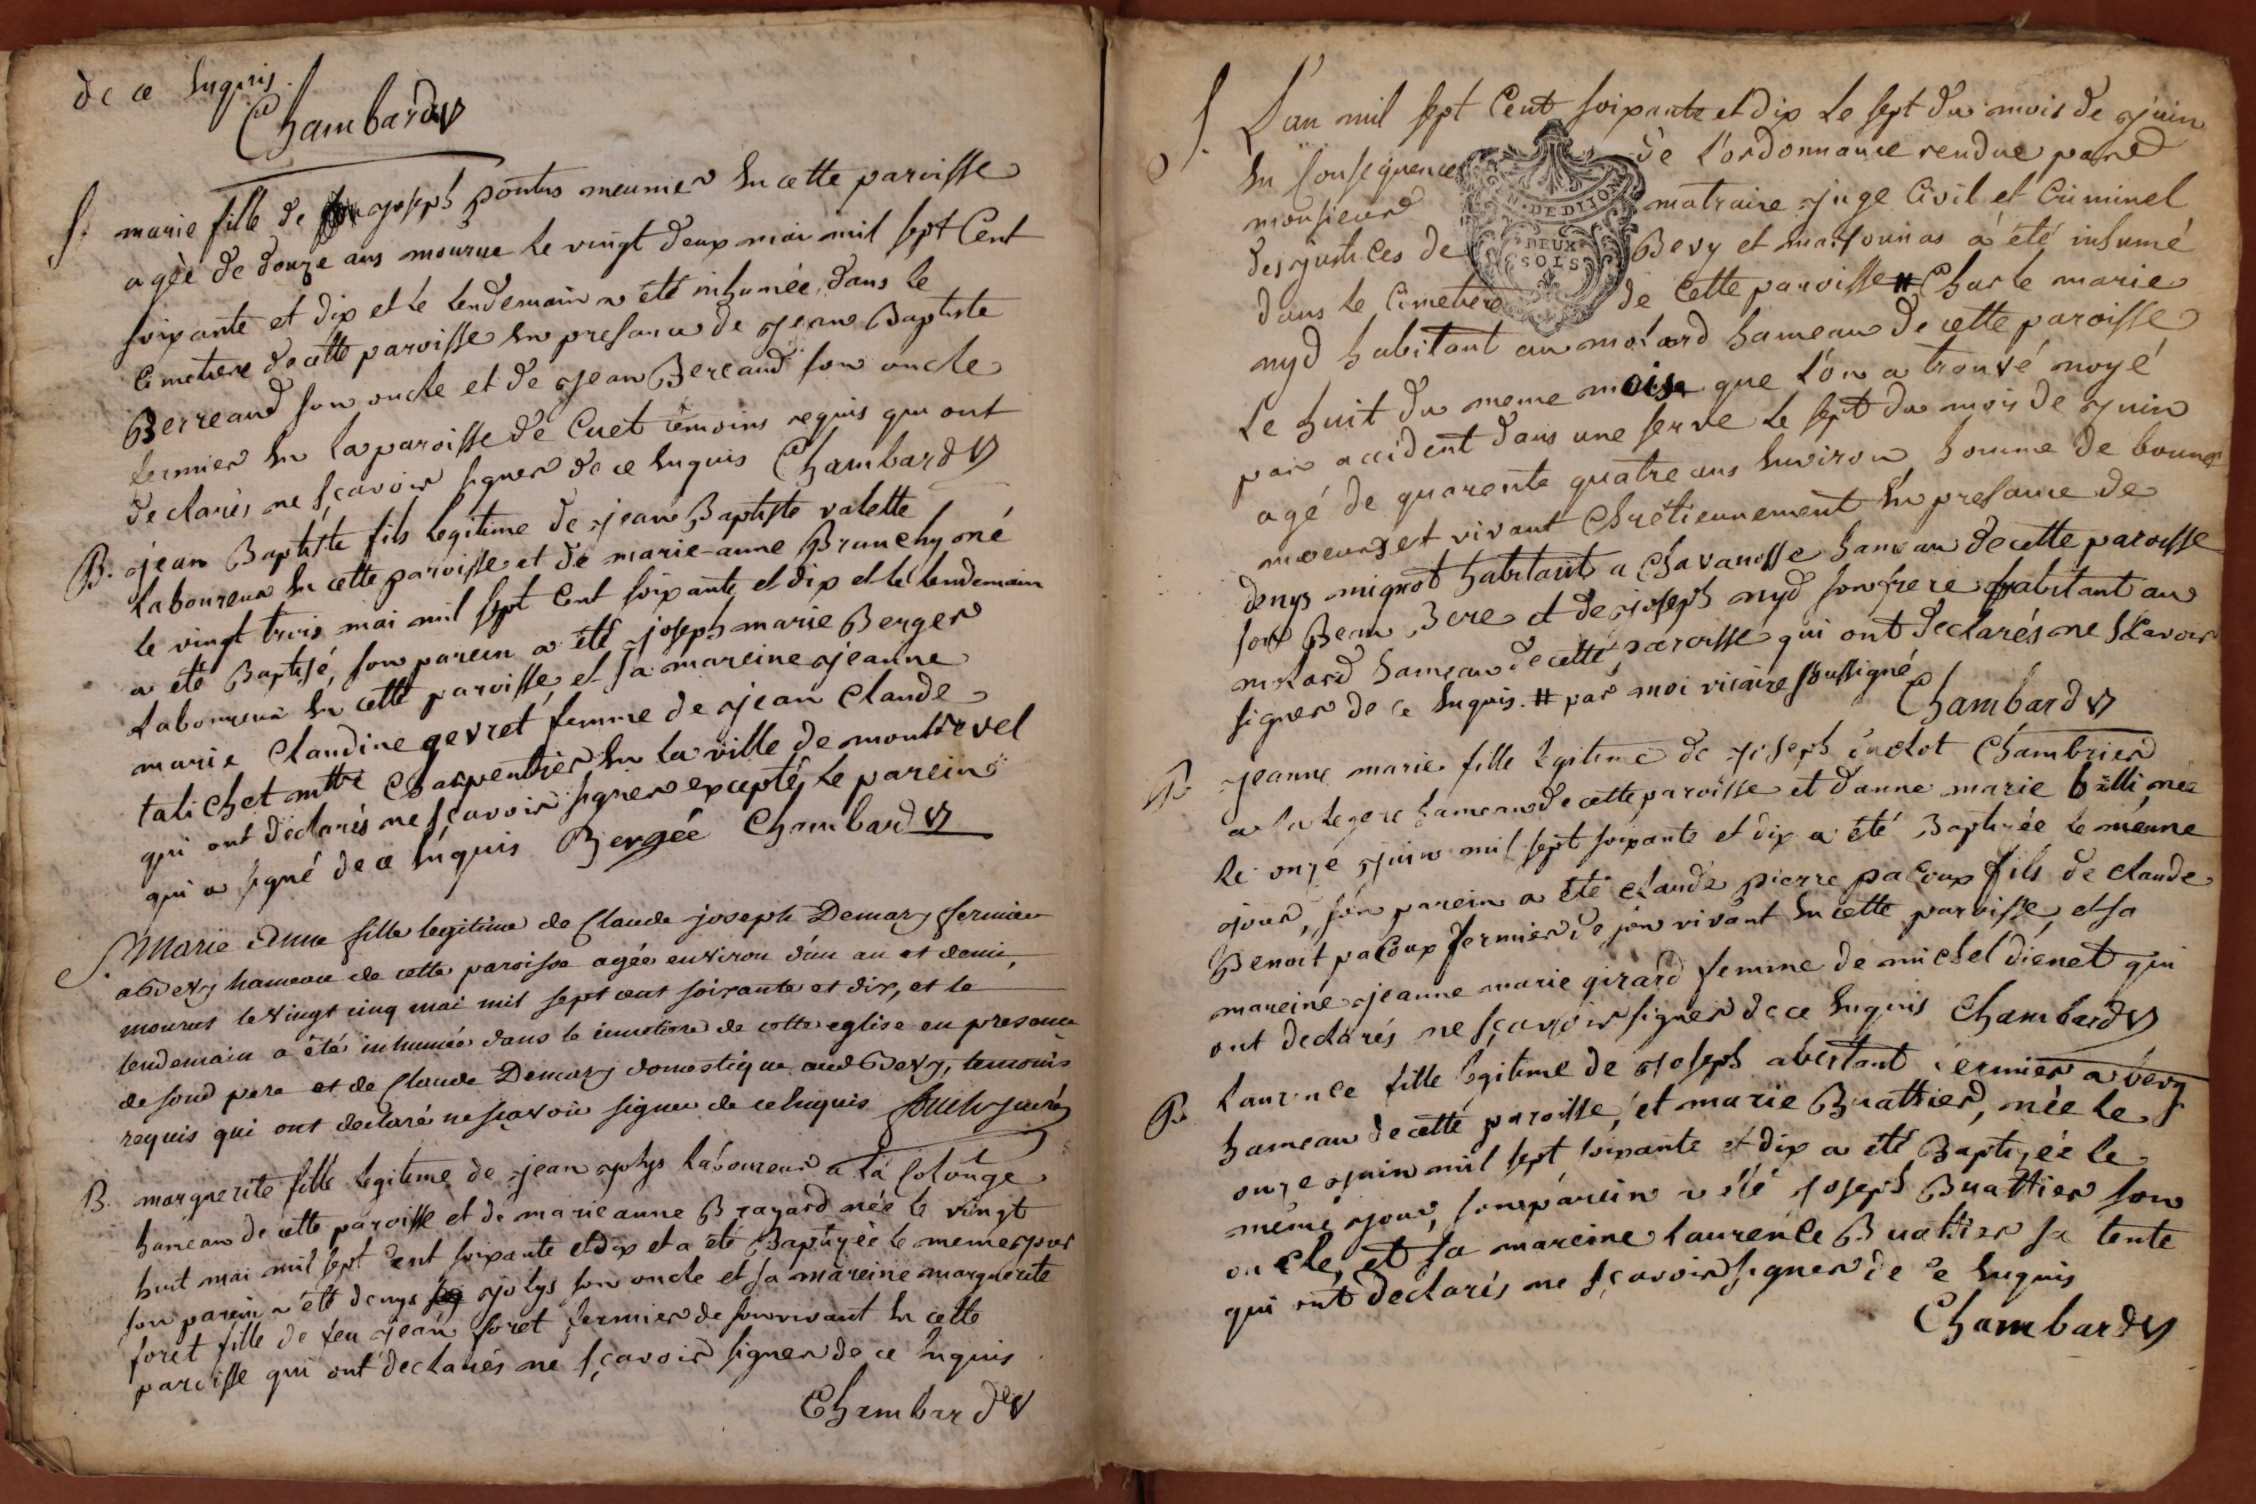 de ce Enquis.
Chambard v
S. marie fille de joseph pontus meunier En cette paroisse
agèe de douze ans mourue le vingt deux mai mil sept Cent
soixante et dix et le lendemain a été inhumée dans le
Cimetiere de cette paroisse En presance de jean Baptiste
Berreaud son oncle et de jean Bereaud son oncle
fermier En la paroisse de Cuet témoins requis qui ont
declarés ne sçavoir signer de ce Enquis Chambard v
B. jean Baptiste fils legitime de jean Baptiste valette
laboureur En cette paroisse et de marie-anne Brunchy né
le vingt trois mai mil sept Cent soixante et dix et le lendemain
a eté Baptisé, son parein a été joseph marie Berger
laboureur En cette paroisse, et sa mareine jeanne
marie Claudine gevret femme de jean Claude
talichet mttre Charpentier En la ville de montrevel
qui ont declarés ne sçavoir signer excepté le parein
qui a signé de ce Enquis Bergée Chambard v
S. Marie Anne fille legitime de Claude joseph Demary fermier
a Bevy hameau de cette paroisse agée environ d'un an et demi,
mourut le vingt cinq mai mil sept cent soixante et dix, et le
lendemain a été inhumée dans le cimetiere de cette eglise en presence
de soud pere et de Claude Demary domestique aud Bevy, temoins
requis qui ont declaré ne sçavoir signer de ce Enquis
B. marguerite fille legitime de jean jolys laboureur a la Colonge
hameau de cette paroisse et de marie anne Brayard née le vingt
huit mai mil sept Cent soixante et dix et a été Baptizèe le meme jour
son parein a été denys jolys son oncle et sa mareine marguerite
foret fille de feu jean foret fermier de son vivant En cette
paroisse qui ont declarés ne sçavoir signer de ce Enquis
Chambard v
S. L'an mil sept Cent soixante et dix le sept du mois de juin
En Consequence de l'ordonnance rendue par
monsieur matraire juge Civil et Criminel
des justices de Bevy et marsonnas a été inhumé
dans le Cimetiere de Cette paroisse # Charle marie
nyd habitant au molard hameau de cette paroisse
Le huit du meme mois que l'on a trouvé noyé
par accident dans une serve le sept du mois de juin
agé de quarente quatre ans Environ homme de bonne
moeurs et vivant Chrétiennement En presance de
denys mignot habitant a Chavanosse hameau de cette paroisse
son Beau Bere et de joseph nyd son frere habitant au
molard hameau de cette paroisse qui ont declarés ne sçavoir
signer de ce Enquis. # par moi vicaire soussigné
Chambard v
B. jeanne marie fille legitime de joseph duclot Chambrier
a la legere hameau de cette paroisse et d'anne marie billi née
le onze juin mil sept soixante et dix a été Baptizée le meme
jour, son parein a été claude pierre pacoup fils de claude
Benoit pacoup fermier de son vivant En cette paroisse, et sa
mareine jeanne marie girard femme de michel dienet qui
ont declarés ne sçavoir signer de ce Enquis Chambard v
B. Laurence fille legitime de joseph abertant fermier a bevy
hameau de cette paroisse, et marie Buattier, née le
onze juin mil sept soixante et dix a été Baptizée le
même jour, son parein a été joseph Buattier son
oncle, et sa mareine Laurence Buattier sa tente
qui ont declarés ne sçavoir signer de ce Enquis
Chambard v
N. DE DIJON
DEUX
SOLS